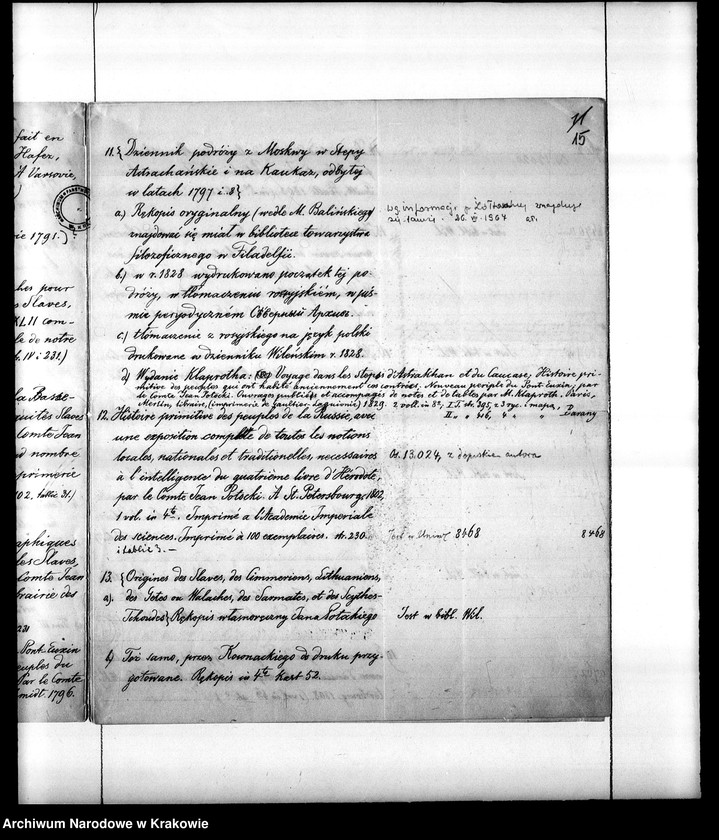 fait en
Hafez,
Varsovie,
)
ie 1791.)
hes pour
s Slaves,
XLII com-
le de notre
b. IV i 231.)
la Basse-
quités Slaves
Comte Jean
nd nombre
primerie
02. tablic 31.)
aphiques
les Slaves,
Comte Jean
brairie des
231
Pont-Euxin
euples du
Par le Comte
midt. 1796.
15
11. { Dziennik podróży z Moskwy w Stepy
Astrachańskie i na Kaukaz, odbytej
w latach 1797 i 8 }
a.) Rękopis oryginalny (wedle M. Balińskiego)
znajdować się miał w bibliotece towarzystwa
filozoficznego w Filadelfii.
wg informacji p. Żółtowskiej znajduje
się tamże. 26 1964
b.) w r. 1828 wydrukowano początek tej po-
dróży, w tłomaczeniu rossyjskiém, w piś-
mie peryodyczném Сѣверный Архивъ.
c.) tłomaczenie z rosyjskiego na język polski
drukowane w dzienniku Wileńskim r. 1828.
d) Wydanie Klaprotha: Voyage dans les Steps d'Astrakhan et du Caucase; Histoire pri-
mitive des peuples qui ont habité anciennement ces contrées. Nouveau periple du Pont Euxin, par
le Comte Jean Potocki. Ouvrages publiés et accompagés de notes et de tables par M. Klaproth. Paris,
Merlin, libraire, (imprimerie de Gaultier-Laguionie) 1829. 2 voll. in 8º, I T. str. 395, z 3 ryc. i mapą,
II " " 416, 4 " "
Barany
12. Histoire primitive des peuples de la Russie, avec
une exposition complète de toutes les notions
locales, nationales et traditionelles, necessaires
à l'intelligence du quatrième livre d'Hérodote,
par le Comte Jean Potocki. A St. Petersbourg, 1802,
1 vol. in 4to. Imprimé a l'Academie Imperiale
des sciences. Imprimé à 100 exemplaires. str. 230.
i tablic 3. —
13.024, z dopiskiem autora
Jest w Uniw. 8468
8468
13. { Origines des Slaves, des Cimmeriens, Lithuaniens,
a). des Gètes ou Walaches, des Sarmates, et des Scythes-
Tchoudes } Rękopis własnoręczny Jana Potockiego
Jest w bibl. Wil.
b) Toż samo, przez Kownackiego do druku przy-
gotowane. Rękopis in 4to kart 52.
Archiwum Narodowe w Krakowie